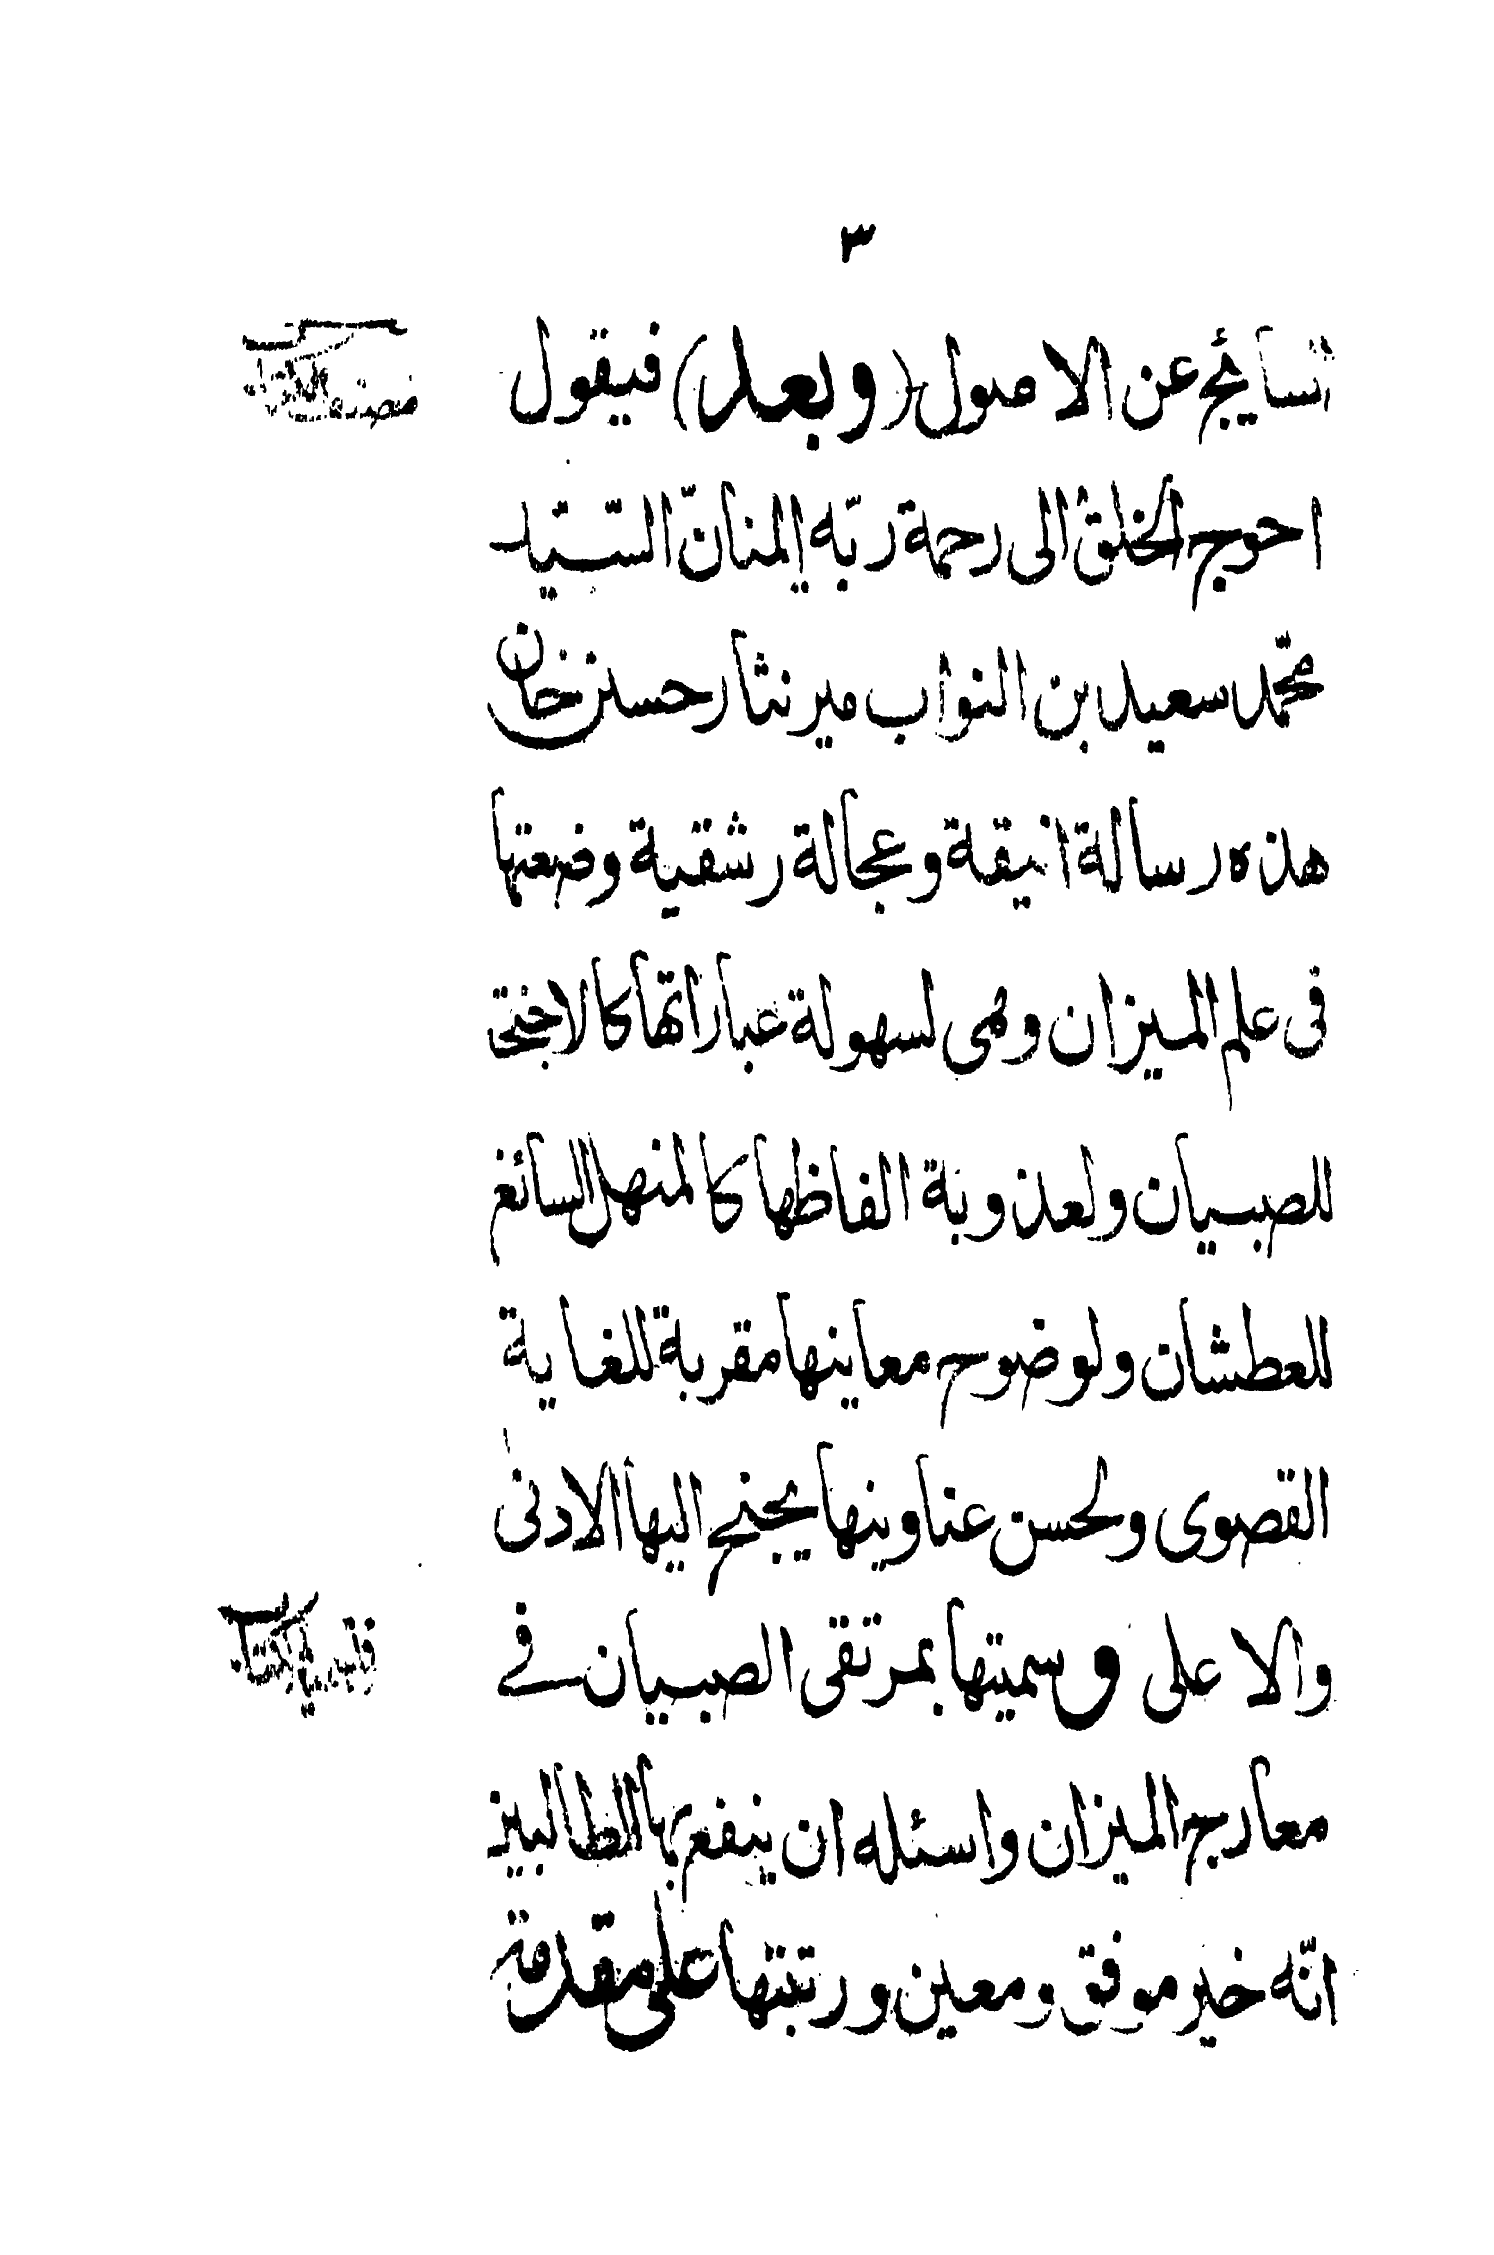 ٣
النسايئج عن الاصول (وبعد) فيقول
احوج الخلق الى رحمة ربّه المنانّ السّيّد
محمّد سعيد بن النواب مير نثار حسنن خان
هذه رسالة انيقة وعجالة رشقية وضعتها
فى علم الميزان وهى لسهولة عباراتها كالاجنحة
للصبيان ولعذوبة الفاظها كالمنهل السائغ
للعطشان ولوضوح معاينها مقربة للغاية
القصوى ولحسن عناوينها يجنح اليها الادنى
والاعلى وسميتها بمرتقى الصبيان فے
معارج الميزان واسئله ان ينفع بها الطالبين
انّه خير موفق ومعين ورتبتها على مقدمة